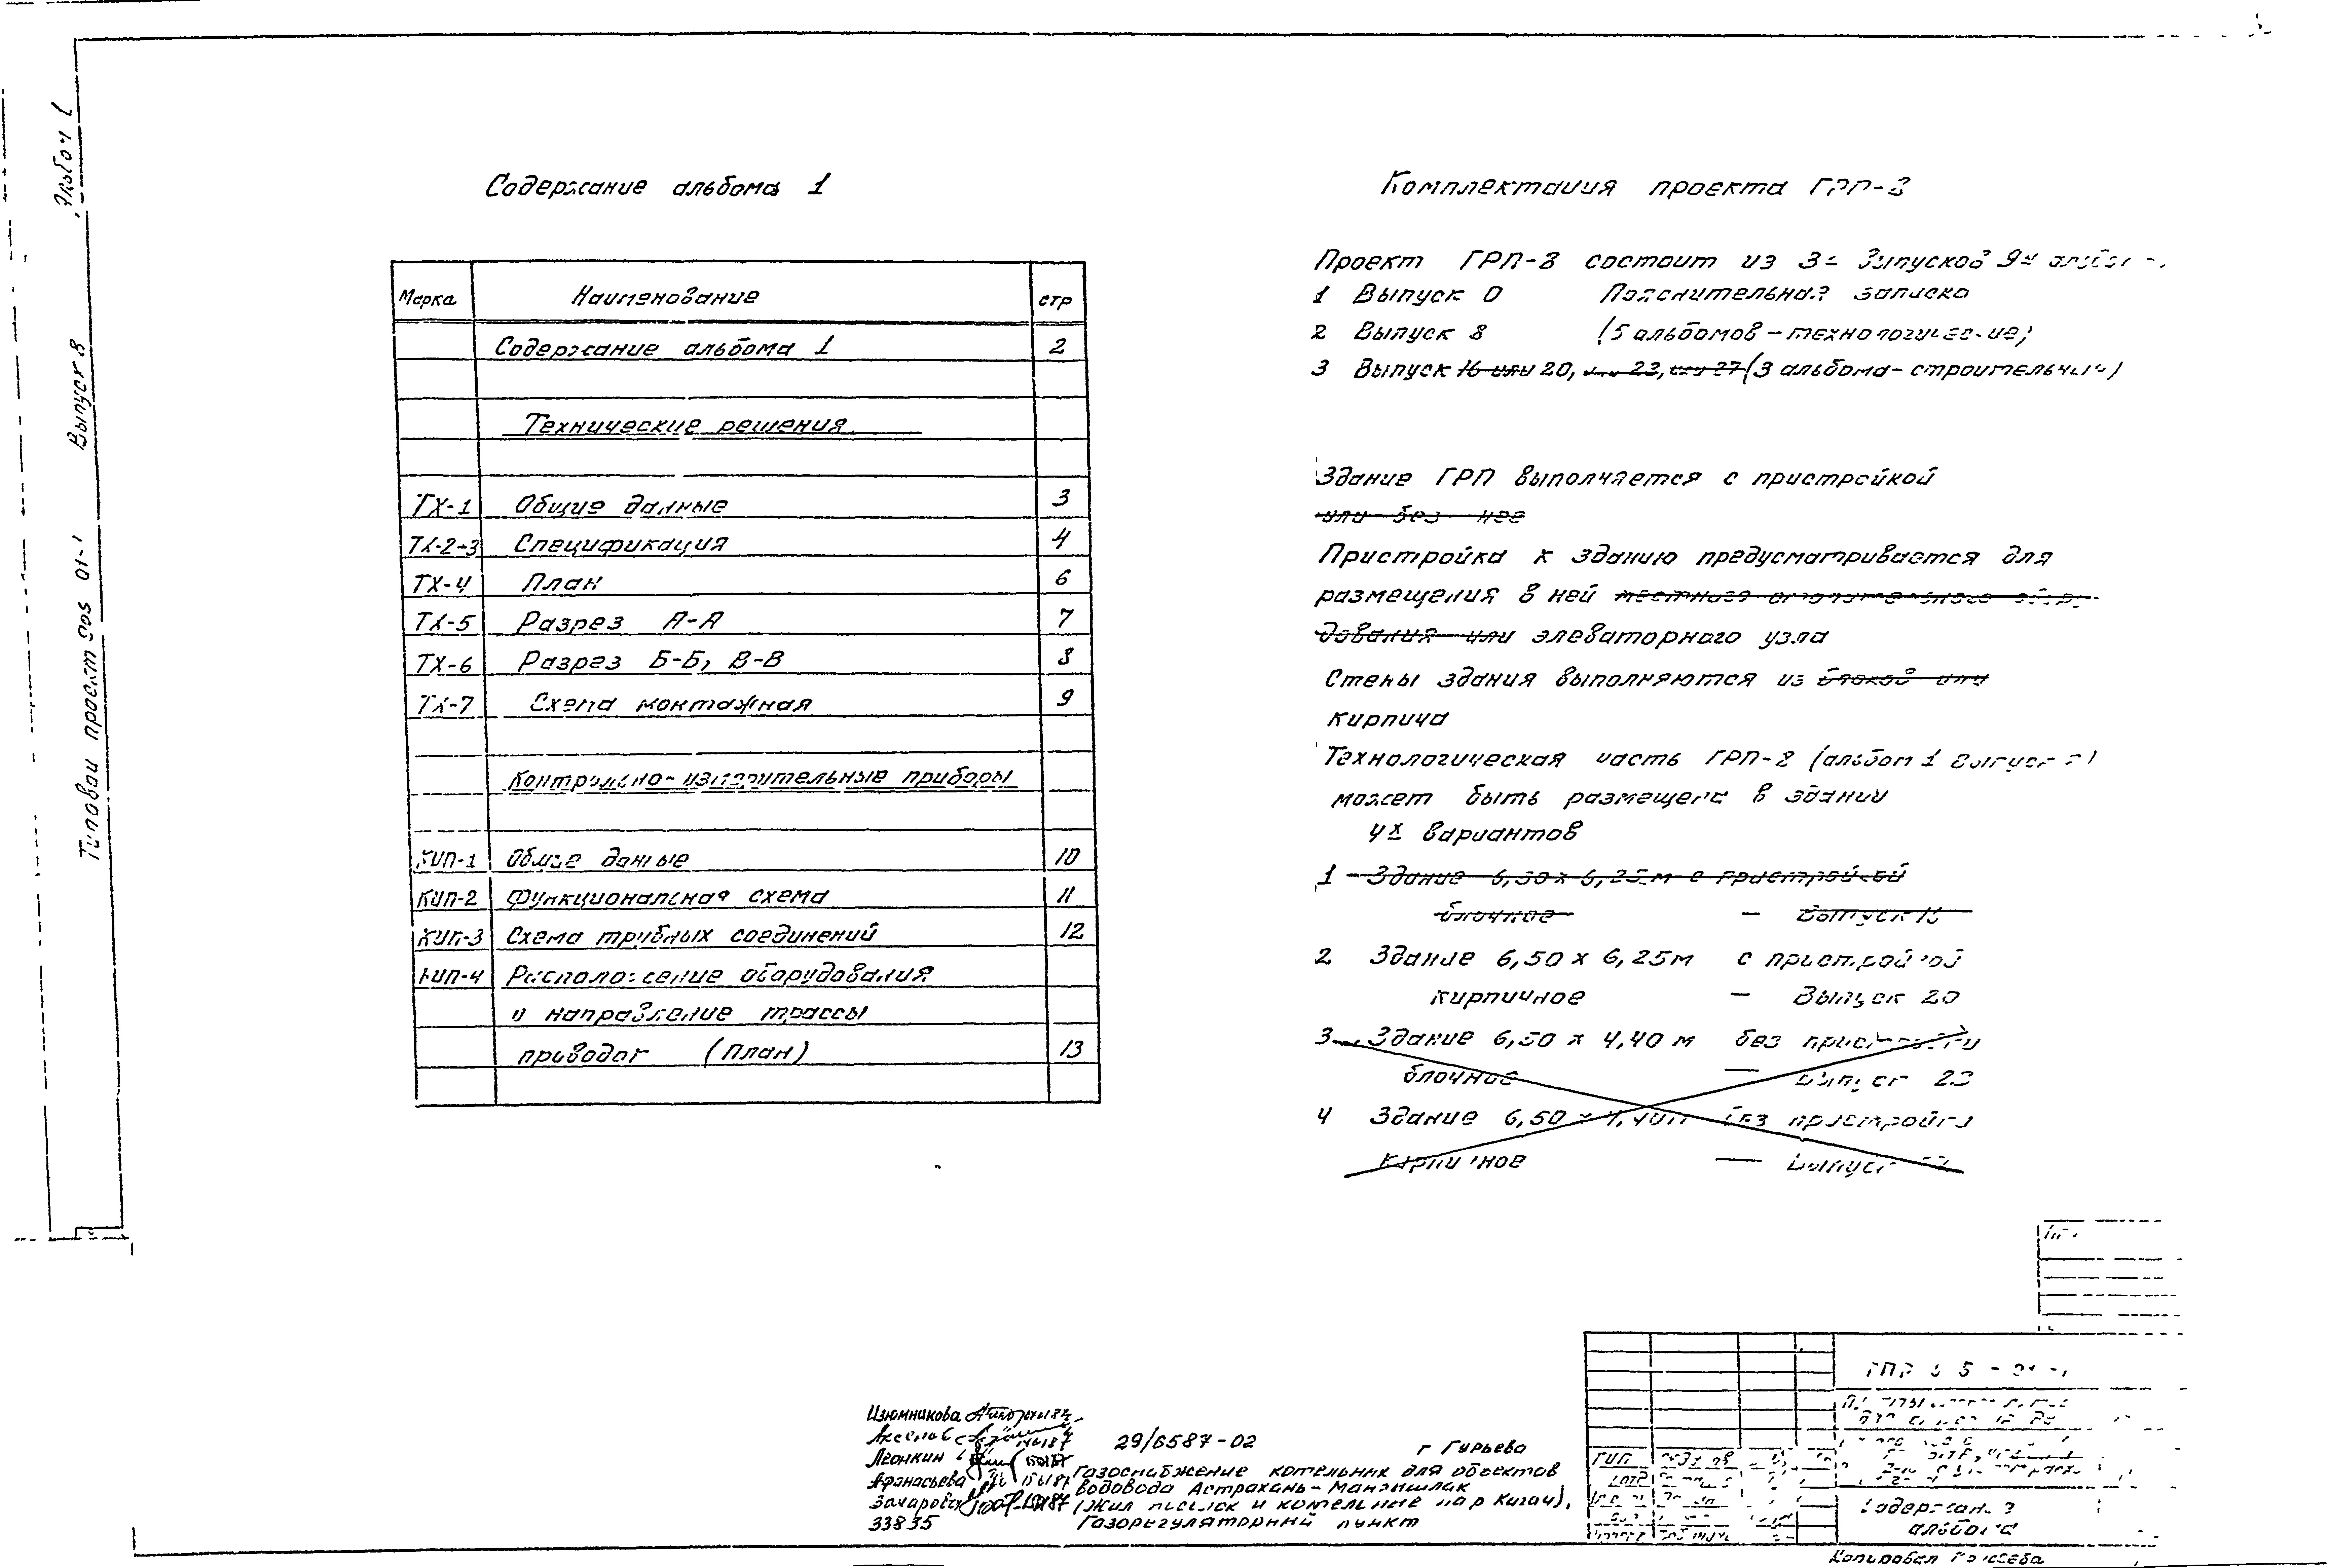 Альбом 1
Выпуск 8
Типовой проект 905 01-1
Содержание альбома 1
Марка Наименование стр
Содержание альбома 1 2
Технические решения
ТХ-1 Общие данные 3
ТХ-2÷3 Спецификация 4
ТХ-4 План 6
ТХ-5 Разрез А-А 7
ТХ-6 Разрез Б-Б, В-В 8
ТХ-7 Схема монтажная 9
Контрольно-измерительные приборы
КИП-1 Общие данные 10
КИП-2 Функциональная схема 11
КИП-3 Схема трубных соединений 12
КИП-4 Расположение оборудования
и направление трассы
проводок (План) 13
Комплектация проекта ГРП-8
Проект ГРП-8 состоит из 3х выпусков 9и
1 Выпуск 0 Пояснительная записка
2 Выпуск 8 (5 альбомов - технологические)
3 Выпуск 16 или 20, или 23, или 27 (3 альбома - строительные)
Здание ГРП выполняется с пристройкой
или без нее
Пристройка к зданию предусматривается для
размещения в ней местного отопительного обору-
дования или элеваторного узла
Стены здания выполняются из блоков или
кирпича
Технологическая часть ГРП-8 (альбом 1 Выпуск 8)
может быть размещена в здании
4х вариантов
1 Здание 6,50 х 6,25м с пристройкой
блочное - Выпуск 16
2 Здание 6,50 х 6,25м с пристройкой
кирпичное - Выпуск 20
3 Здание 6,50 х 4,40 м без пристройки
блочное - Выпуск 23
4 Здание 6,50 х 4,40м без пристройки
кирпичное - Выпуск
Изюмникова
Аксенов
Леонкин
Афанасьева
Захарова
33835
29/6587-02
г Гурьева
Газоснабжение котельник для объектов
водовода Астрахань-Мангышлак
(жил поселок и котельные на р Кигач),
Газорегуляторный пункт
ГИП
Содержание
альбома
Копировал